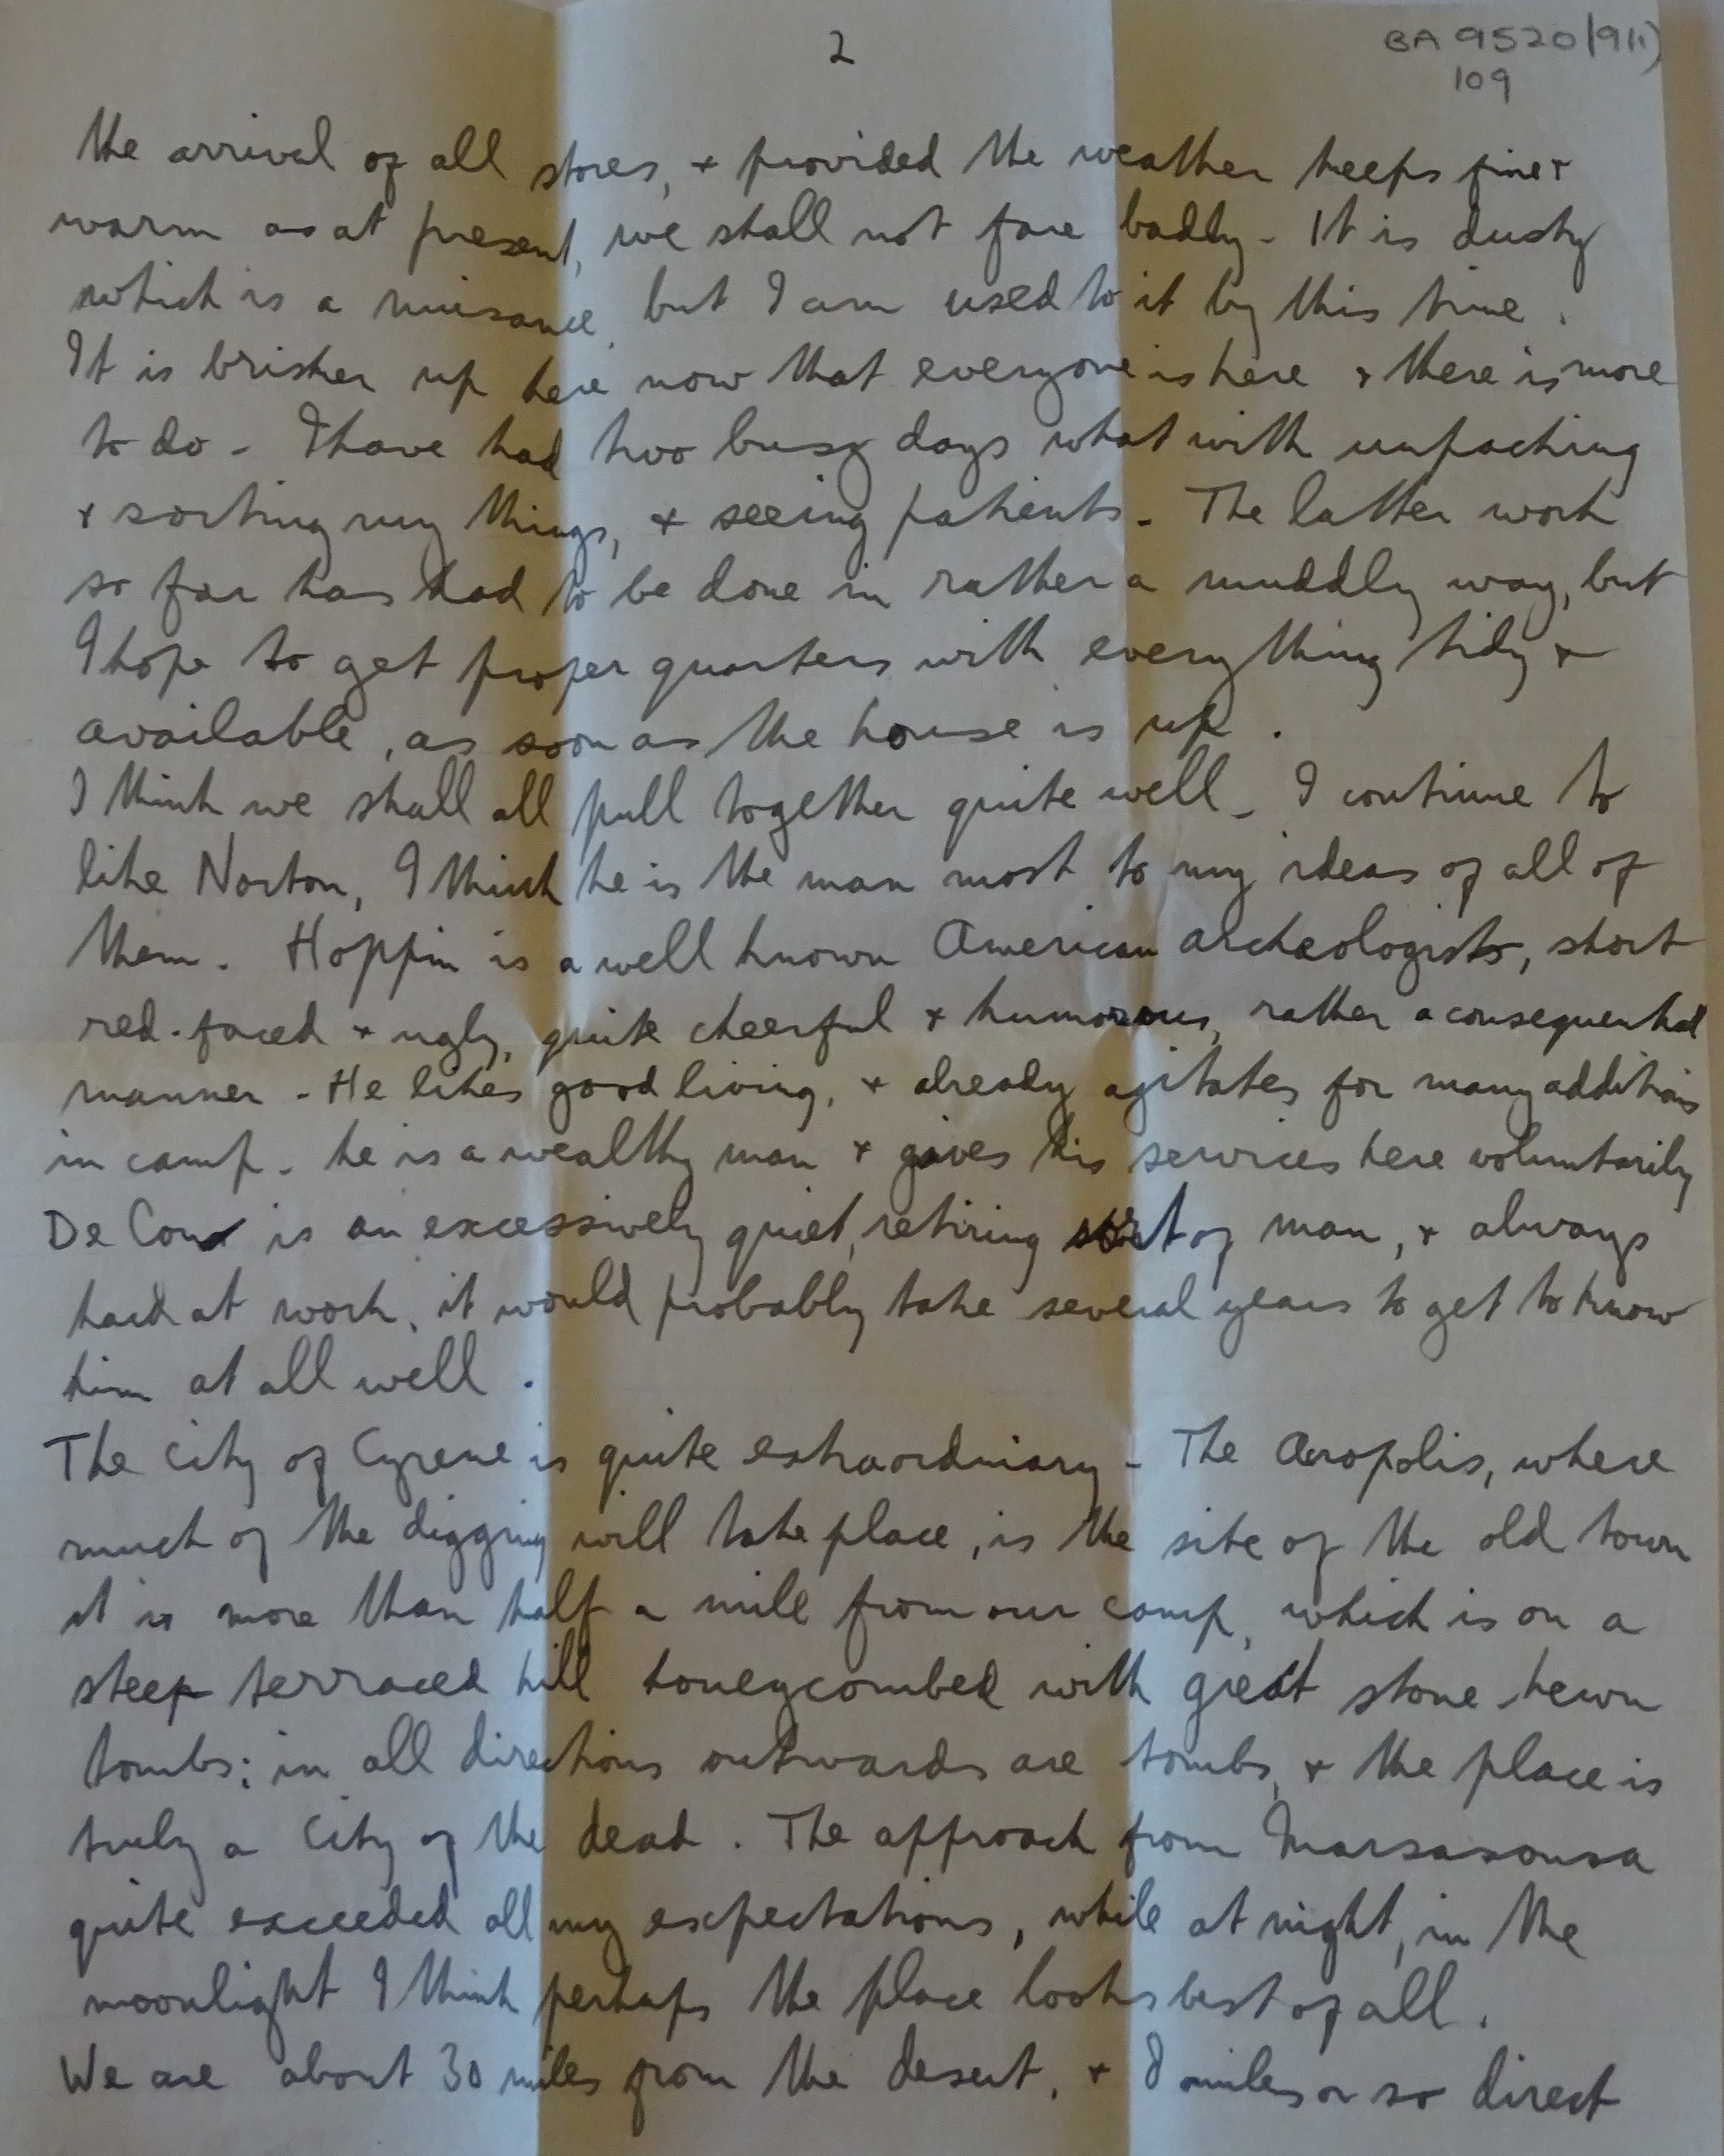 2
BA 9520/9(1)
109
the arrival of all stores, + provided the weather keeps fine +
warm as at present, we shall not fare badly - It is dusty
which is a nuisance, but I am used to it by this time.
It is brisker up here now that everyone is here + there is more
to do - I have had two busy days what with unpacking
+ sorting my things, + seeing patients - The latter work
so far has had to be done in rather a muddly way, but
I hope to get proper quarters with everything tidy +
available, as soon as the house is up.
I think we shall all pull together quite well - I continue to
like Norton, I think he is the man most to my ideas of all of
them. Hoppin is a well known American archeologists, short
red-faced + ugly, quite cheerful + humorous, rather a consequential
manner - He likes good living, + already agitates for many additions
in camp - he is a wealthy man + gives his services here voluntarily
De Cou is an excessively quiet, retiring sort of man, + always
hard at work, it would probably take several years to get to know
him at all well.
The City of Cyrene is quite extraordinary - The Acropolis, where
much of the digging will take place, is the site of the old town
it is more than half a mile from our camp, which is on a
steep terraced hill honeycombed with great stone hewn
tombs; in all directions outwards are tombs, + the place is
truly a City of the dead. The approach from Marsasousa
quite exceeded all my expectations, while at night, in the
moonlight I think perhaps the place looks best of all.
We are about 30 miles from the desert, + 8 miles or so direct